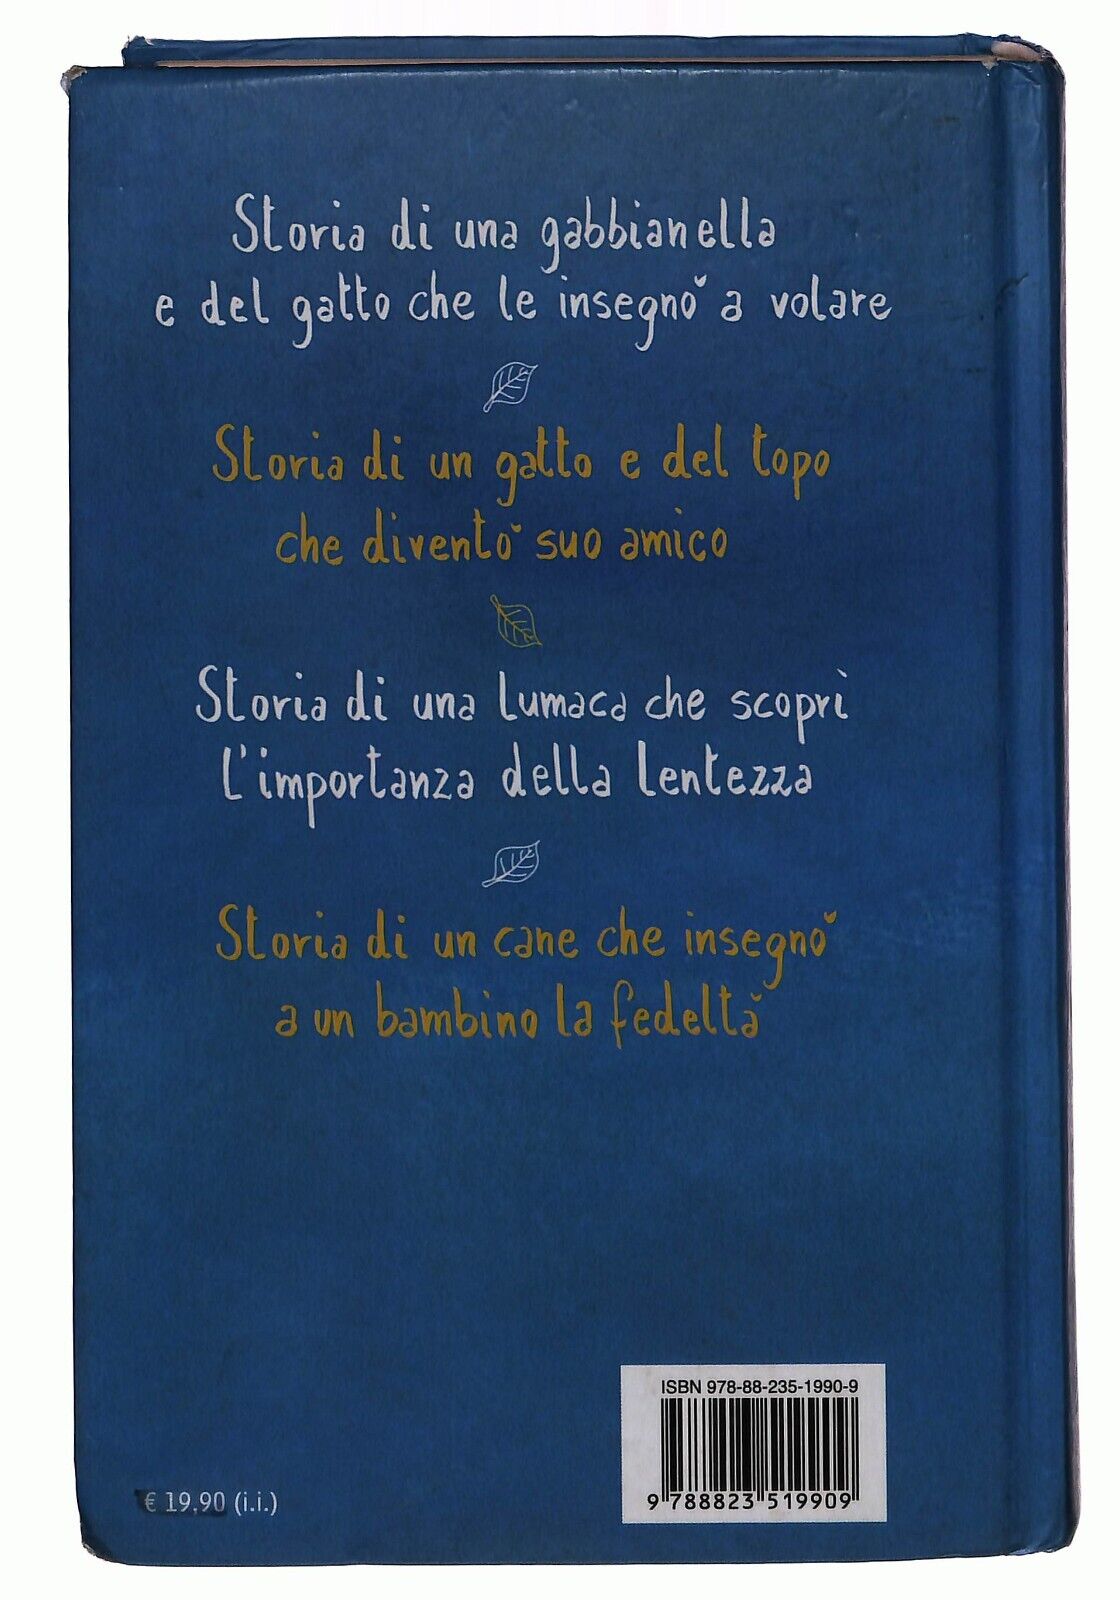 Storia di una gabbianella
e del gatto che le insegnò a volare
Storia di un gatto e del topo
che diventò suo amico
Storia di una lumaca che scoprì
l'importanza della lentezza
Storia di un cane che insegnò
a un bambino la fedeltà
ISBN 978-88-235-1990-9
9 788823 519909
€ 19,90 (i.i.)